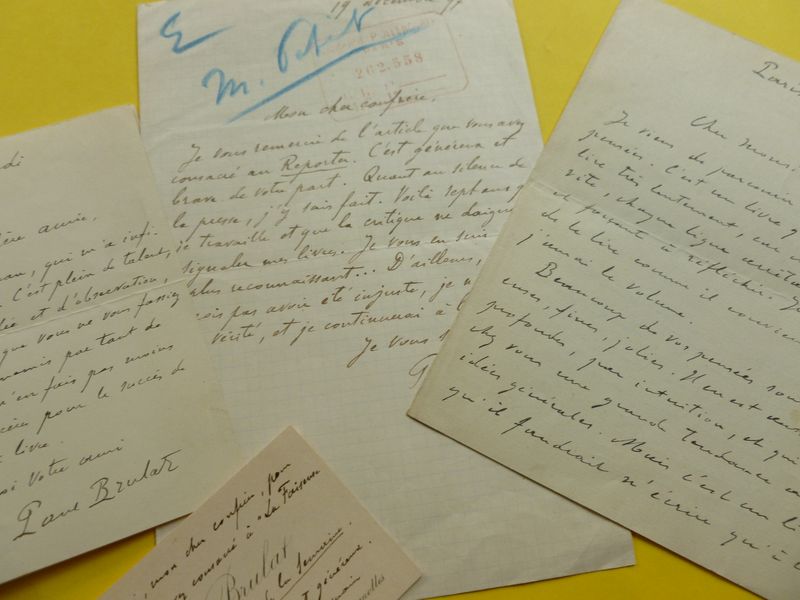 di
ère amie,
man, qui m'a infi-
. C'est plein de talent,
et d'observation,
que vous ne vous fassiez
par tant de
n'en fais pas moins
pour le succès de
livre.
Votre ami
Paul Brulat
19 décembre 97
E
M. Petit
PARIS
262.558
Mon cher confrère,
Je vous remercie de l'article que vous avez
consacré au Reporter. C'est généreux et
brave de votre part. Quant au silence de
la presse, j'y suis fait. Voilà sept ans q
je travaille et que la critique ne daigne
signaler mes livres. Je vous en suis
plus reconnaissant... D'ailleurs,
ois pas avoir été injuste, je n
vérité, et je continuerai à l
Je vous s
P
Paris
Cher
Je viens de parcourir
pensées. C'est un livre q
lire très lentement, un
vité, chaque ligne
et forçant à réfléchir. Je
de le lire comme il convien
j'aurai le volume.
Beaucoup de vos pensées son
euses, fines, jolies. Il en est
profondes, par intuition, et qui
chez vous une grande tendance a
idées générales. Mais c'est un li
qu'il faudrait n'écrire qu'à
, mon cher confrère, pour
consacré à "La Faiseuse
Brulat
la Semaine.
et généreux.